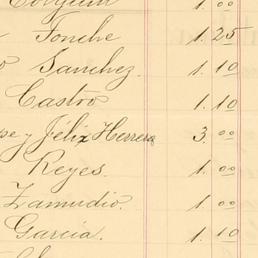 1.00
Fonche 1.25
Sanchez. 1.10
Castro 1.10
y Félix Herrera 3.00
Reyes. 1.00
Zamudio. 1.00
García. 1.10